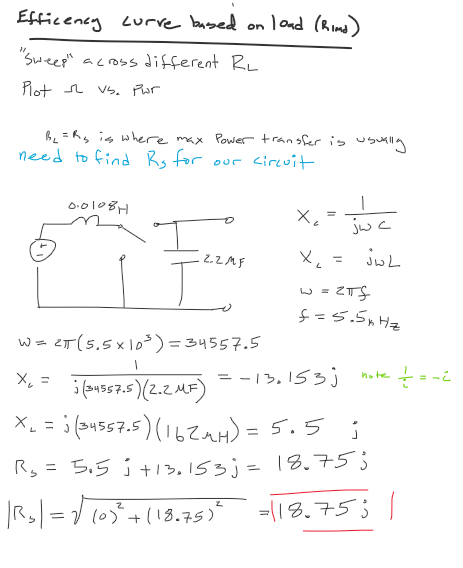 Efficency curve based on load (Rload)
"Sweep" across different RL
Plot Ω vs. Pwr
RL = Rs is where max Power transfer is usually
need to find Rs for our circuit
0.0108H
2.2MF
Xc = 1/jwC
XL = jwL
w = 2πf
f = 5.5kHz
w = 2π(5.5x10³) = 34557.5
Xc = 1/j(34557.5)(2.2MF) = -13.153j note 1/i = -i
XL = j(34557.5)(162uH) = 5.5 j
Rs = 5.5j + 13.153j = 18.75j
|Rs| = √(0)² + (18.75)² = |18.75j|